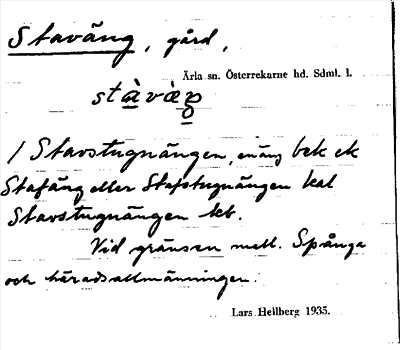 Staväng, gård,
Ärla sn. Österrekarne hd. Sdml. l.
stàvæŋ
/ Stavstugnängen, en äng bek ek
Stafäng eller Stafstugnängen kal
Stavstugnängen kb.
Vid gränsen mell. Spånga
och häradsallmänningen.
Lars Hellberg 1935.